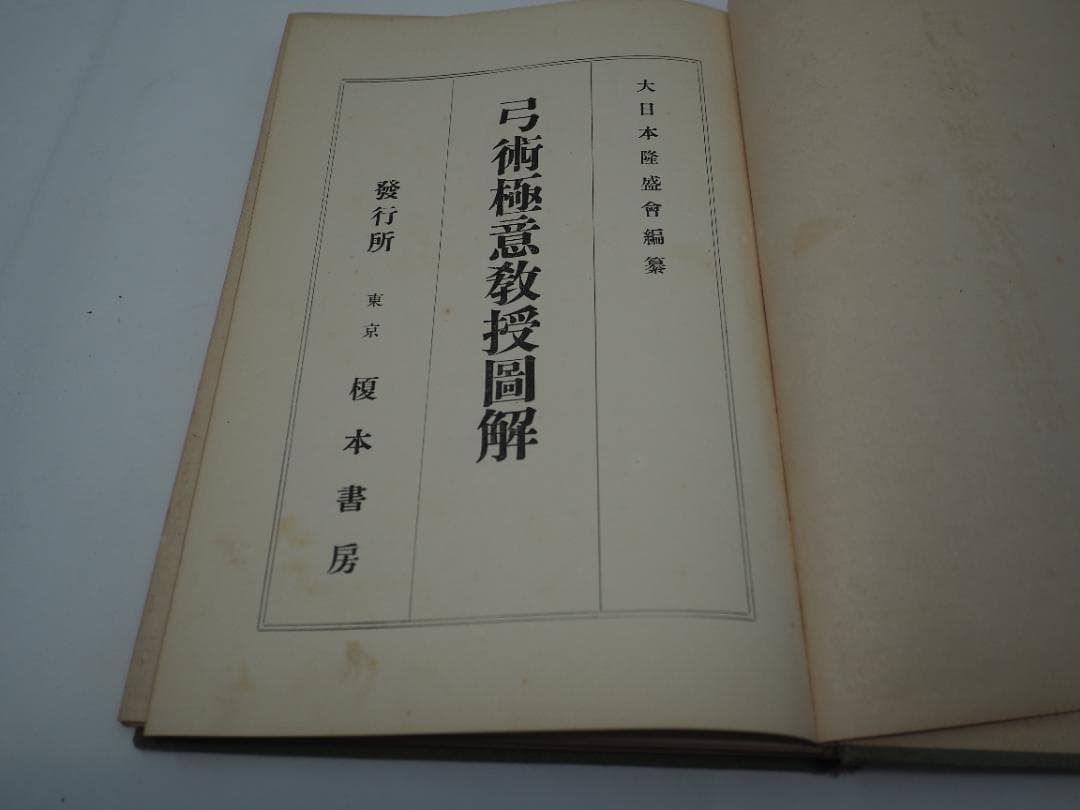 大日本隆盛會編纂
弓術極意敎授圖解
發行所 東京 榎本書房